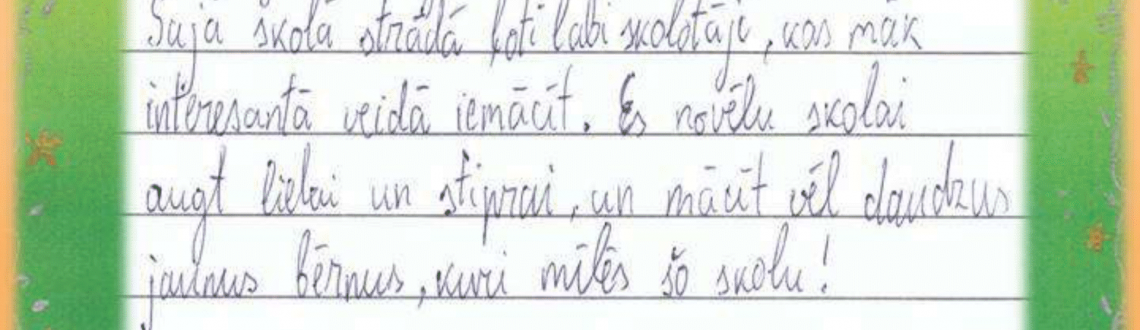 Šajā školā strādā ļoti labi skolotāji, kas māk
interesantā veidā iemācīt. Es novēlu skolai
augt lielai un stiprai, un mācīt vēl daudzus
jaunus bērnus, kuri mīlēs šo skolu!